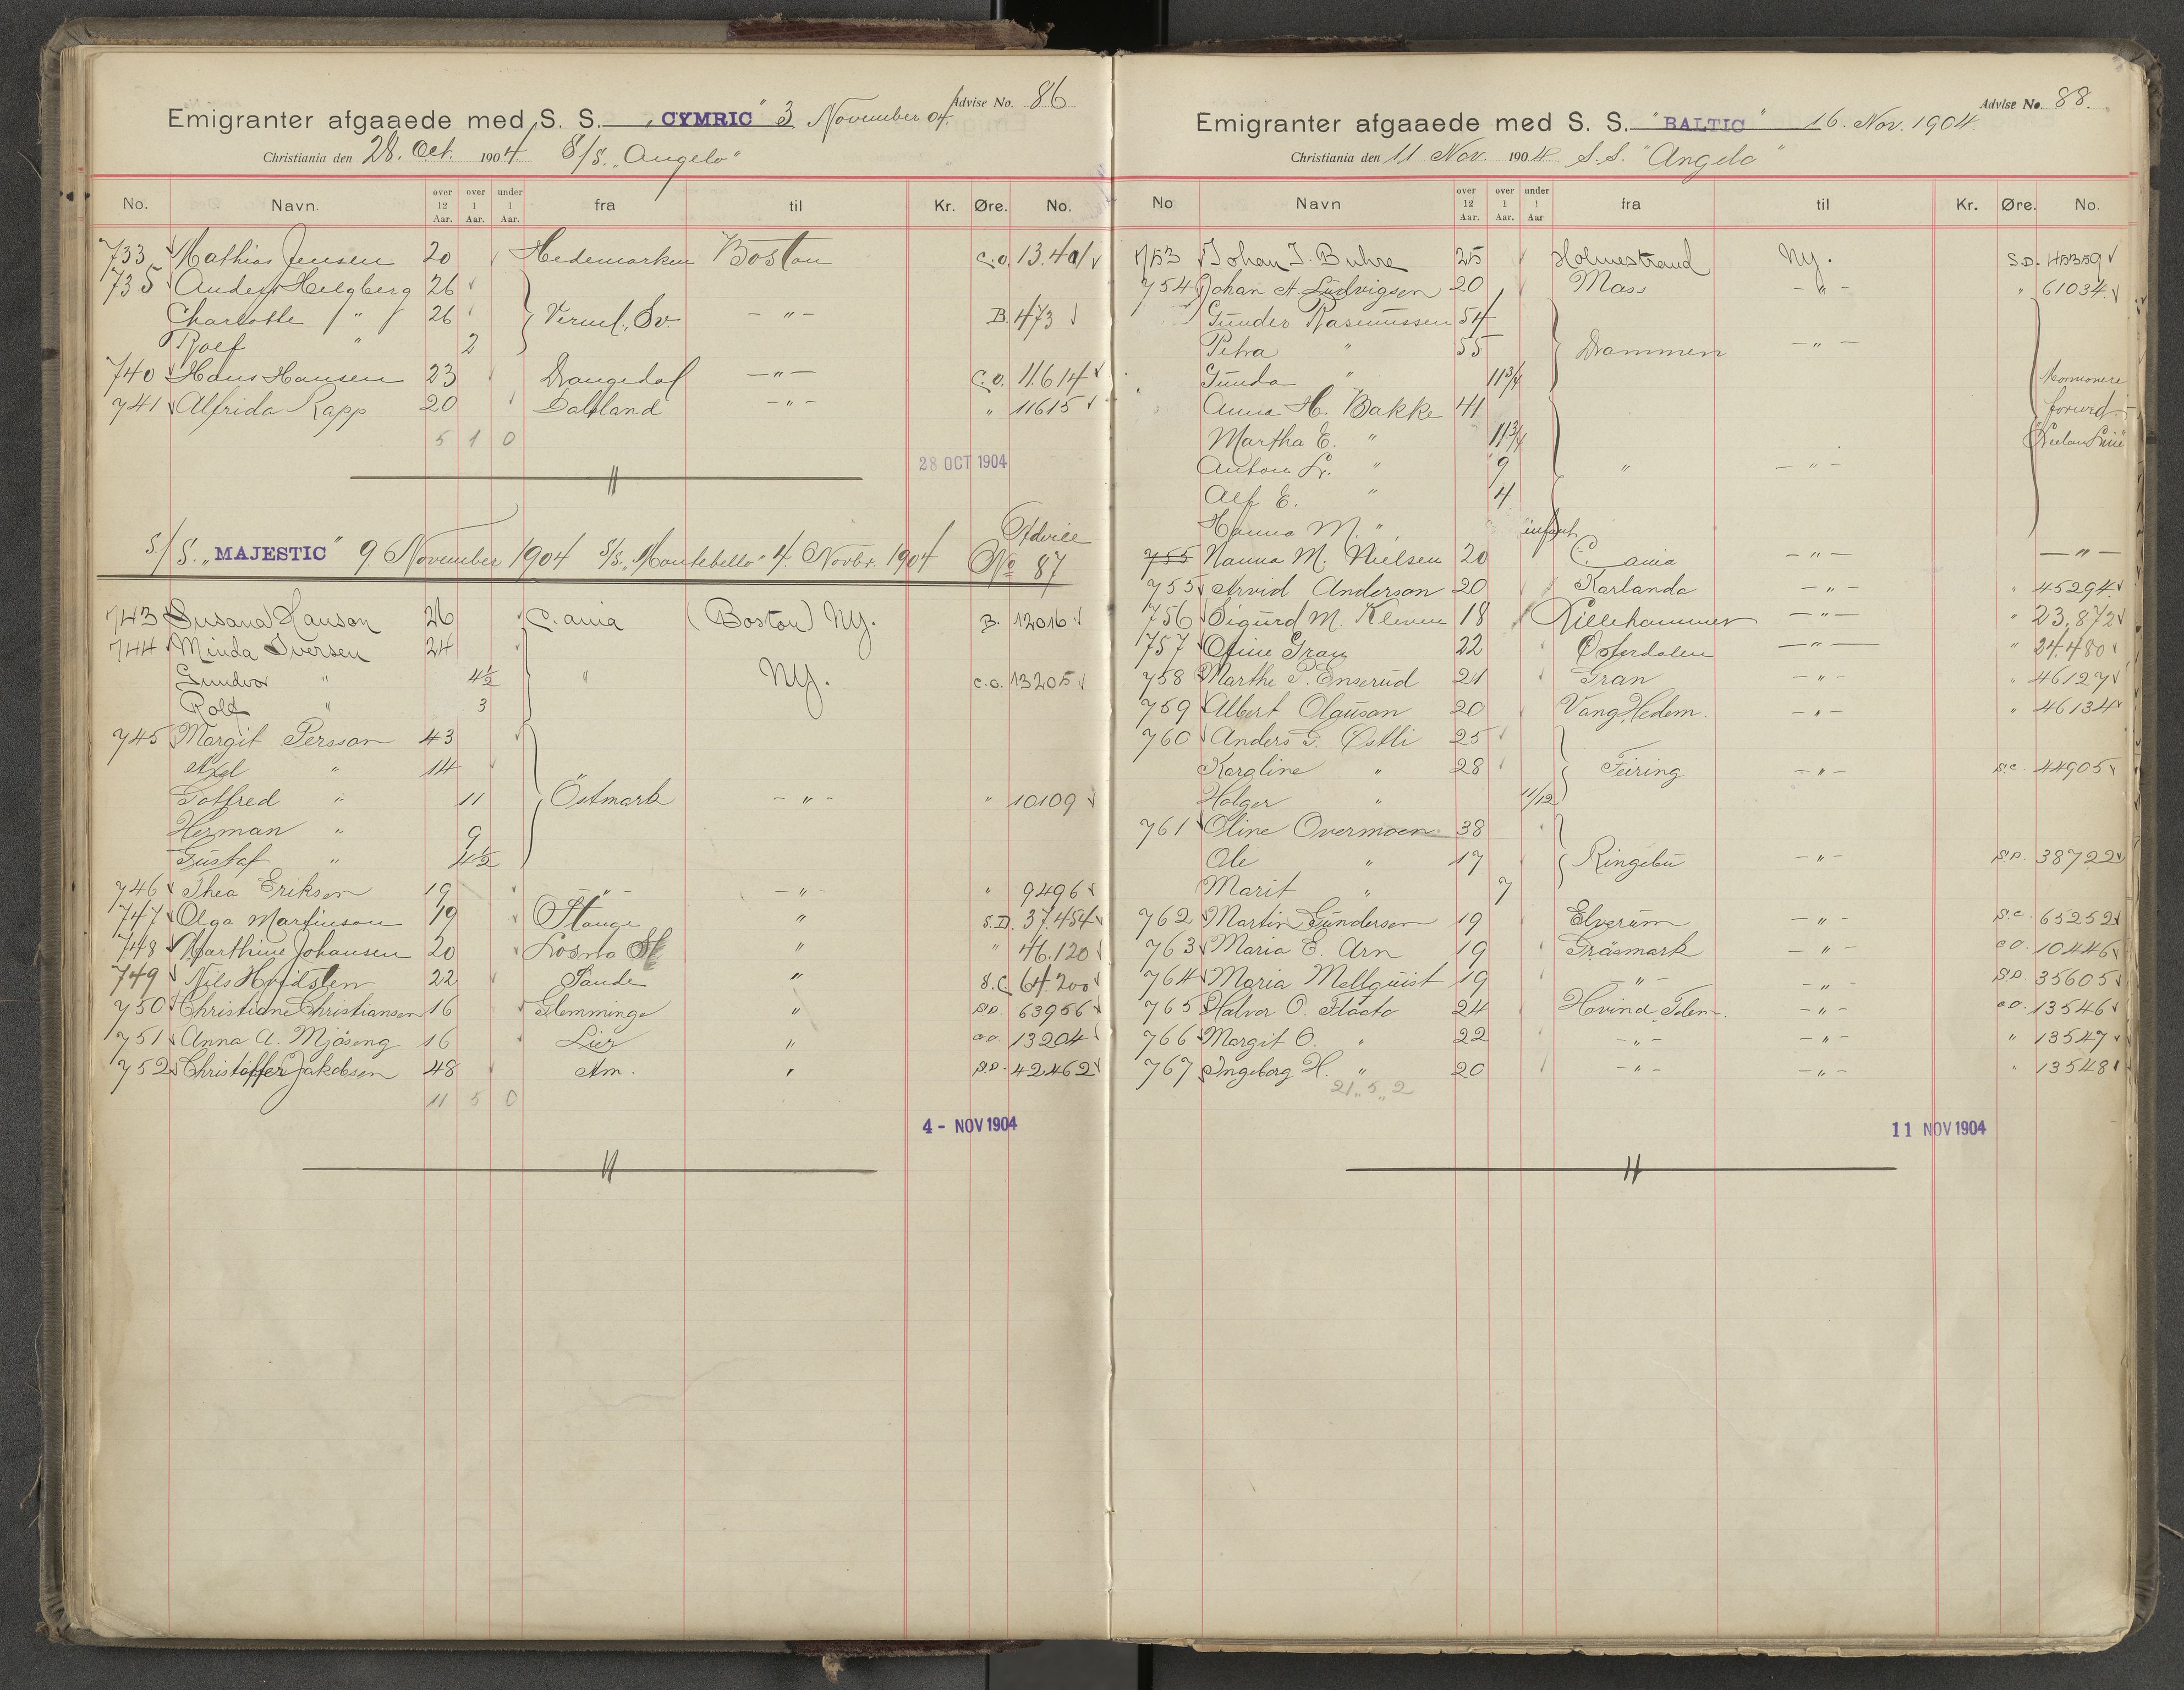 Advise No. 86
Emigranter afgaaede med S. S. „CYMRIC" 3 November 04.
Christiania den 28. Oct. 1904 S/S. „Angelo"
No. Navn. over 12 Aar. over 1 Aar. under 1 Aar. fra til Kr. Øre. No.
733 Mathias Jensen 20 Hedemarken Boston C.O. 13.401
735 Anders Helgberg 26
Charlotte " 26 Verml. Sv. - " - B. 473
Rolf " 2
740 Hans Hansen 23 Drangedal - " - C.O. 11.614
741 Alfrida Rapp 20 Dalsland - " - " 11615
5 1 0
28 OCT 1904
S/S. „MAJESTIC" 9. November 1904 S/S. „Montebello" 4. Novbr. 1904 Advice No 87
743 Susana Hanson 26 C.ania (Boston) Ny. B. 12016
744 Minda Iversen 24
Gundvor " 4½ " Ny. C.O. 13205
Rolf " 3
745 Margit Persson 43
Axel " 14
Gotfred " 11 Östmark - " - " 10109
Herman " 9
Gustaf " 4½
746 Thea Eriksen 19 - " - - " - " 9496
747 Olga Martinson 19 Stange " S.D. 37.454
748 Marthine Johansen 20 Losna St " " 46.120
749 Nils Hvidsten 22 Sande " S.C. 64.200
750 Christiane Christiansen 16 Glemminge " S.D. 63956
751 Anna A. Mjöseng 16 Lier " C.O. 13204
752 Christoffer Jakobsen 48 Am. " S.D. 42462
11 5 0
4 - NOV 1904
Advise No. 88.
Emigranter afgaaede med S. S. "BALTIC" 16. Nov. 1904
Christiania den 11 Nov. 1904 S.S. "Angelo"
No Navn over 12 Aar. over 1 Aar. under 1 Aar fra til Kr. Øre. No.
753 Johan J. Buhre 25 Holmestrand Ny. S.D. 45359
754 Johan A. Ludvigsen 20 Mass - " - " 61034
Gunder Rasmussen 54
Petra " 55 Drammen - " -
Gunda " 11¾ Mormonere
Anna H. Bakke 41 forurd.
Martha E. " 11¾
Anton Fr. " 9 " - " -
Alf E. " 4
Hanna M. " infant
755 Nanna M. Nielsen 20 C.ania - " - - " -
755 Arvid Anderson 20 Karlanda - " - " 45294
756 Sigurd M. Kleven 18 Lillehammer - " - " 23,872
757 Oline Gran 22 Østerdalen - " - " 24.480
758 Marthe P. Enserud 21 Gran - " - " 46127
759 Albert Olauson 20 Vang Hedem. - " - " 46134
760 Anders G. Østli 25
Karoline " 28 Feiring - " - S.C. 44905
Holger " 11/12
761 Oline Overmoen 38
Ole " 17 Ringebu - " - S.D. 38722
Marit " 7
762 Martin Gundersen 19 Elverum - " - S.C. 65252
763 Maria E. Arn 19 Gräsmark - " - C.O. 10446
764 Maria Mellquist 19 - " - - " - S.D. 35605
765 Halvor O. Flaata 24 Hovind Telem. - " - C.O. 13546
766 Margit O. " 22 - " - - " - " 13547
767 Ingeborg H. " 20 - " - - " - " 13548
21 „ 5 „ 2
11 NOV 1904